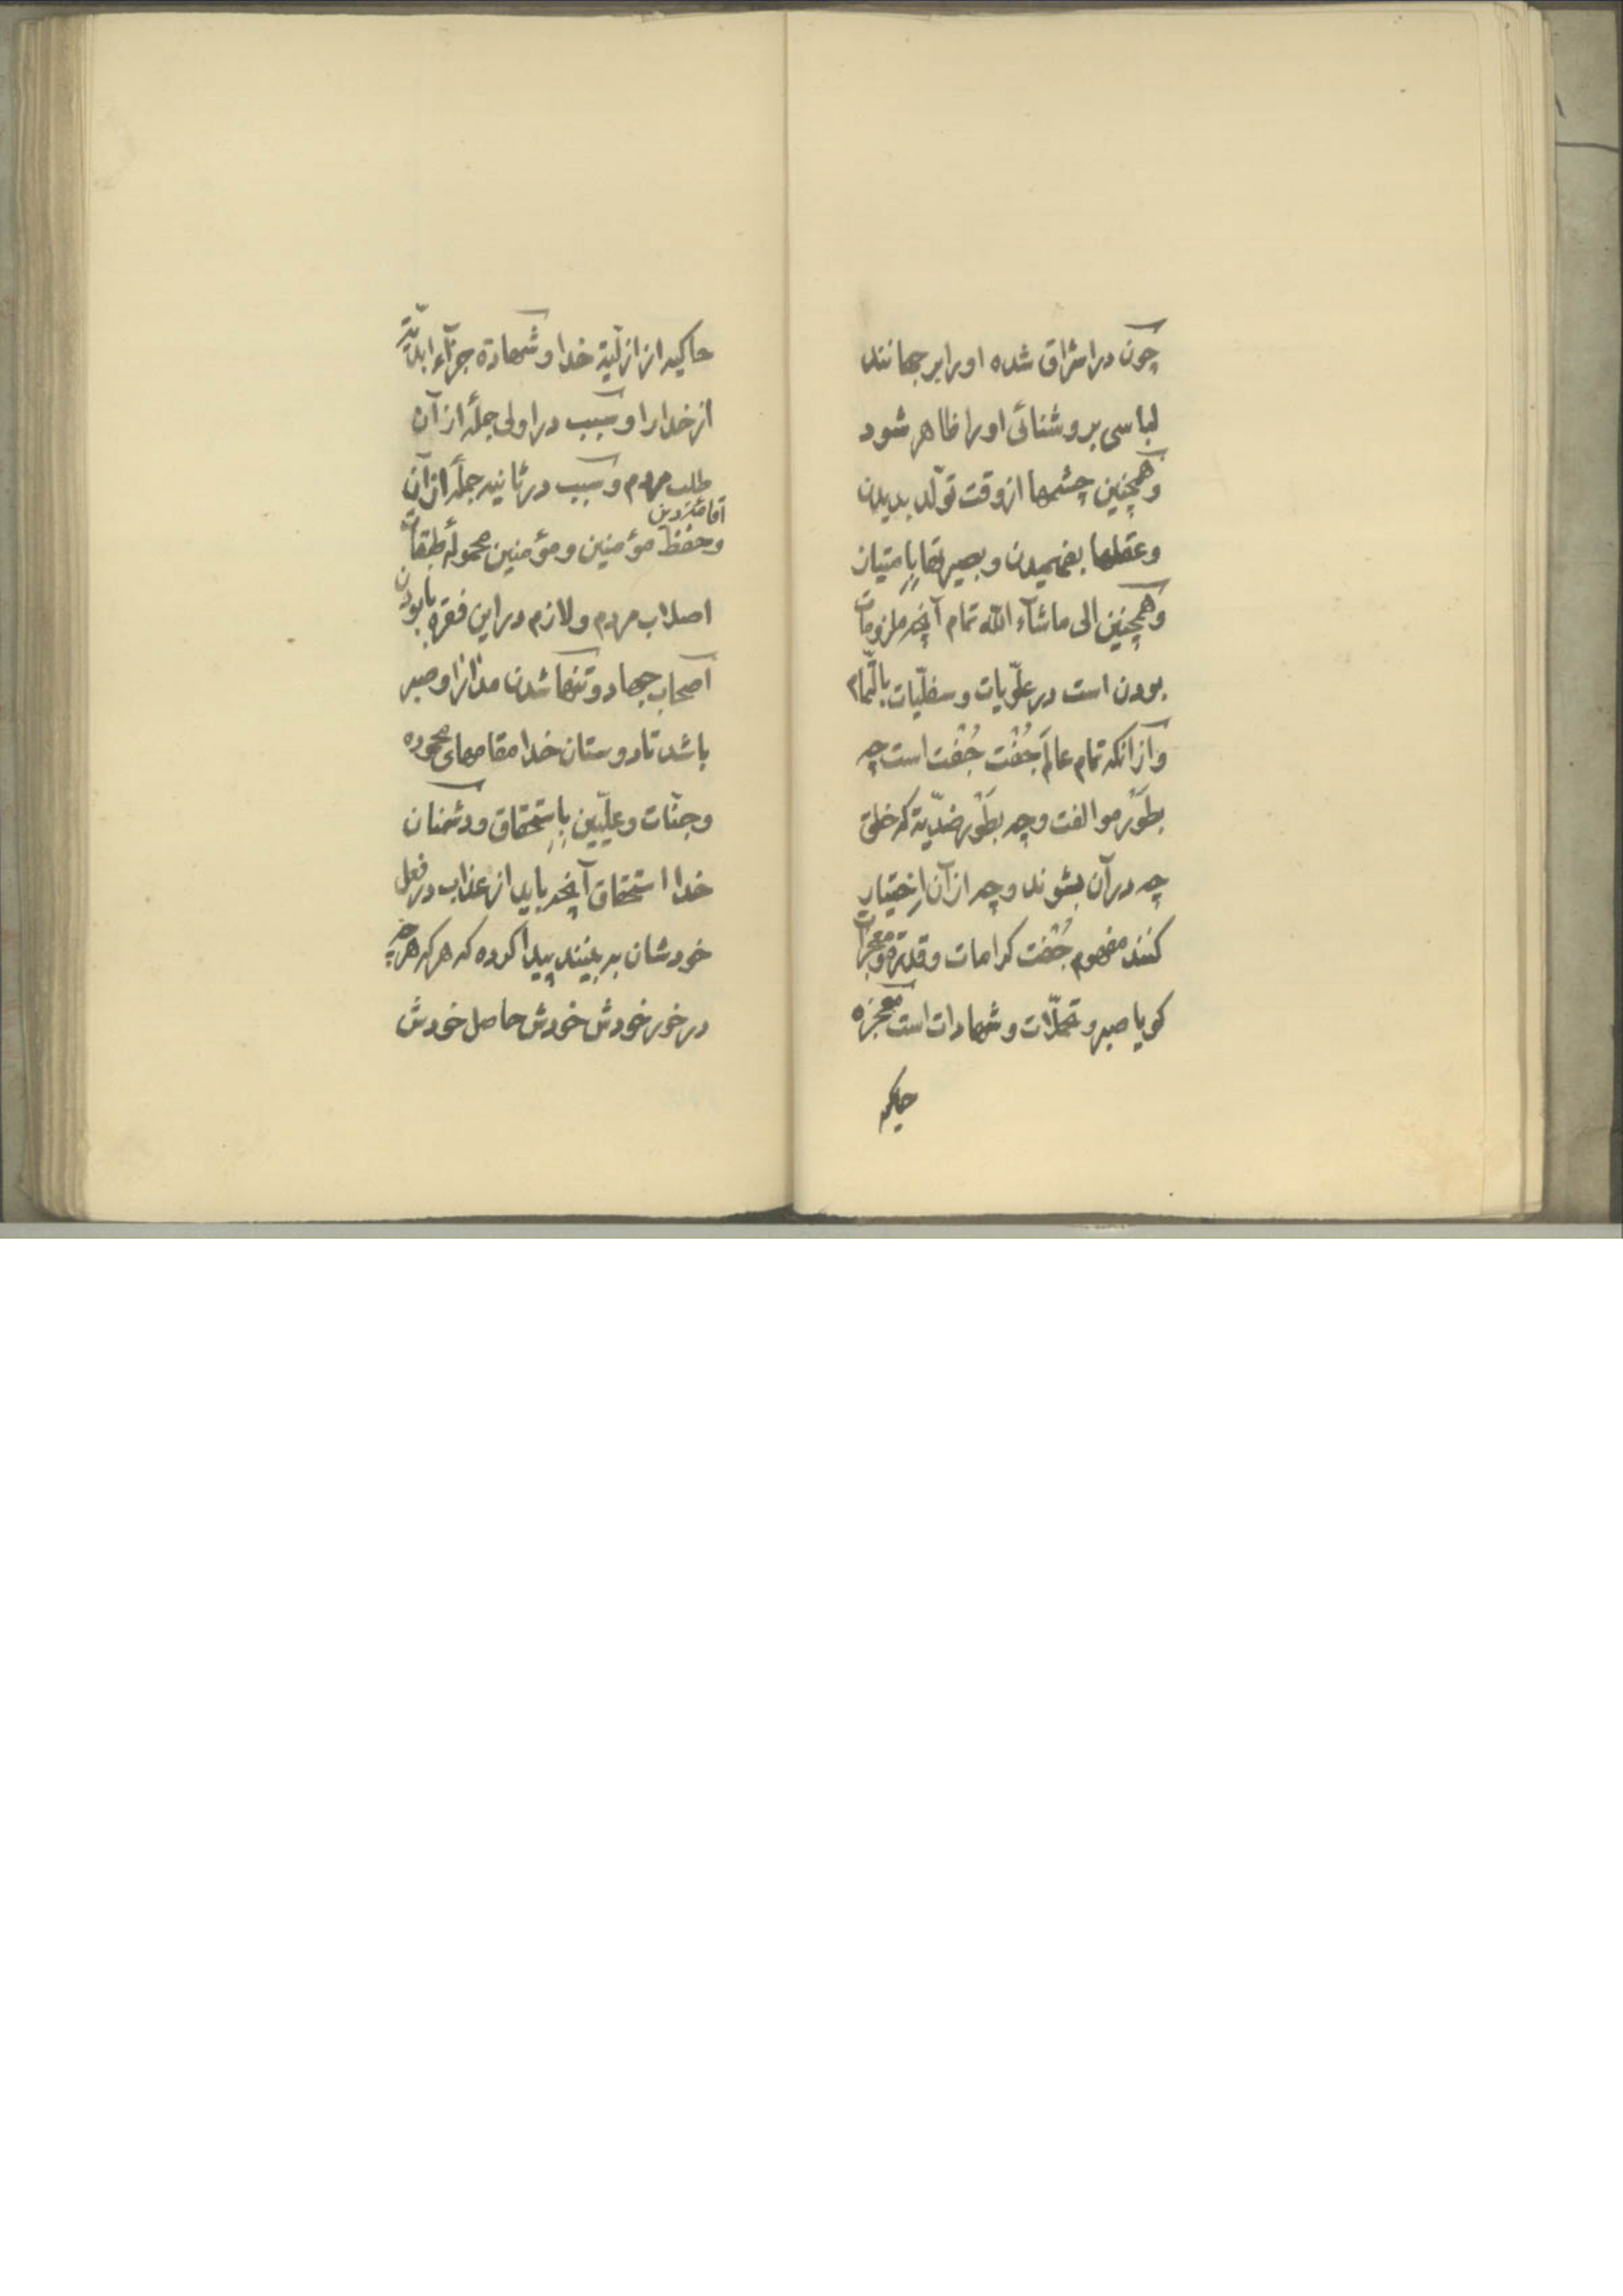 چون در اشراق شده او را بر جهانند
لباسی بروشنائی او را ظاهر شود
وهمچنین چشمها از وقت تولّد بدیدن
وعقلها بفهمیدن و بصیرتها بامتیاز
وهمچنین الی ماشآء الله تمام آنچه ملزومات
بودن است در علویّات و سفلیّات بالتّمام
وازآنکه تمام عالم جُفْت جُفْت است چه
بطَوْر موالفت وچه بطَوْر ضدّیة که خلق
چه در آن بشوند وچه از آن اِختیار
کنند مفهوم جُفْت کرامات و قدرة ومعجزات
کویا صبر و تحمّلات و شهادات است معجزه
حاکیه
حاکیه از ازلیّة خدا و شهادة جزآء ابدیّة
از خدا را و سبب در اولی جملۀ از آن
طلب مردم و سبب در ثانیه جملۀ از آن
وحفظ مؤمنین ومؤمنین محمولۀ طبقات
اصلاب مردم ولازم در این فقره بابودن
اصحاب جهاد و تنها شدن مدارا وصبر
باشد تا دوستان خدا مقامهای محموده
وجنّات وعلیّین بِاِستحقاق ودشمنان
خدا استحقاق آنچه باید از عذاب در فعل
خودشان به بینند پیدا کرده که هر که هرچه
درخور خودش خودش حاصل خودش